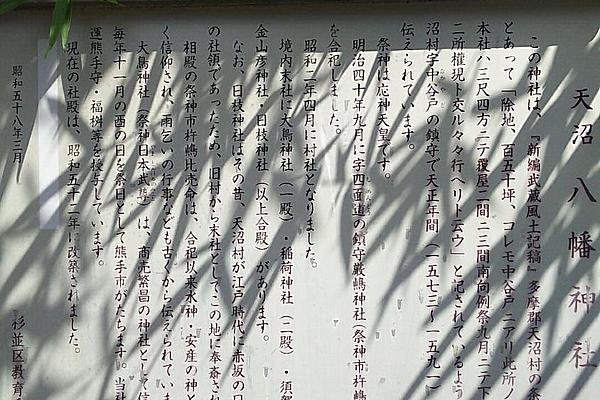 天沼八幡神社
この神社は、『新編武蔵風土記稿』多摩郡天沼村の条
とあって「除地、百五十坪、コレモ中谷戸ニアリ此所ノ
本社ハ三尺四方ニテ覆屋二間ニ三間南向例祭九月二テ下
二所権現ト交ル々々行ヘリト云ウ」と記されているよう
沼村字中谷戸の鎮守で天正年間（一五七三〜一五九一）
伝えられています。
祭神は応神天皇です。
明治四十年九月に字四面道の鎮守厳嶋神社（祭神市杵嶋
を合祀しました。
昭和二年四月に村社となりました。
境内末社に大鳥神社（一殿）・稲荷神社（二殿）・須賀
金山彦神社・日枝神社（以上合殿）があります。
なお、日枝神社はその昔、天沼村が江戸時代に赤坂の日
の社領であったため、旧村から末社としてこの地に奉斎され
相殿の祭神市杵嶋比売命は、合祀以来水神・安産の神と
く信仰され、雨乞いの行事なども古くから伝えられていま
大鳥神社（祭神日本武尊）は、商売繁昌の神社として信
毎年十一月の酉の日を祭日として熊手市がたちます。当社
運熊手守・福桝等を授与しています。
現在の社殿は、昭和五十二年に改築されました。
昭和五十八年三月
杉並区教育